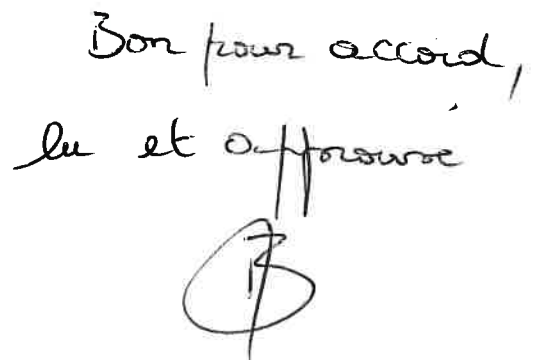 Bon pour accord,
lu et approuvé
B